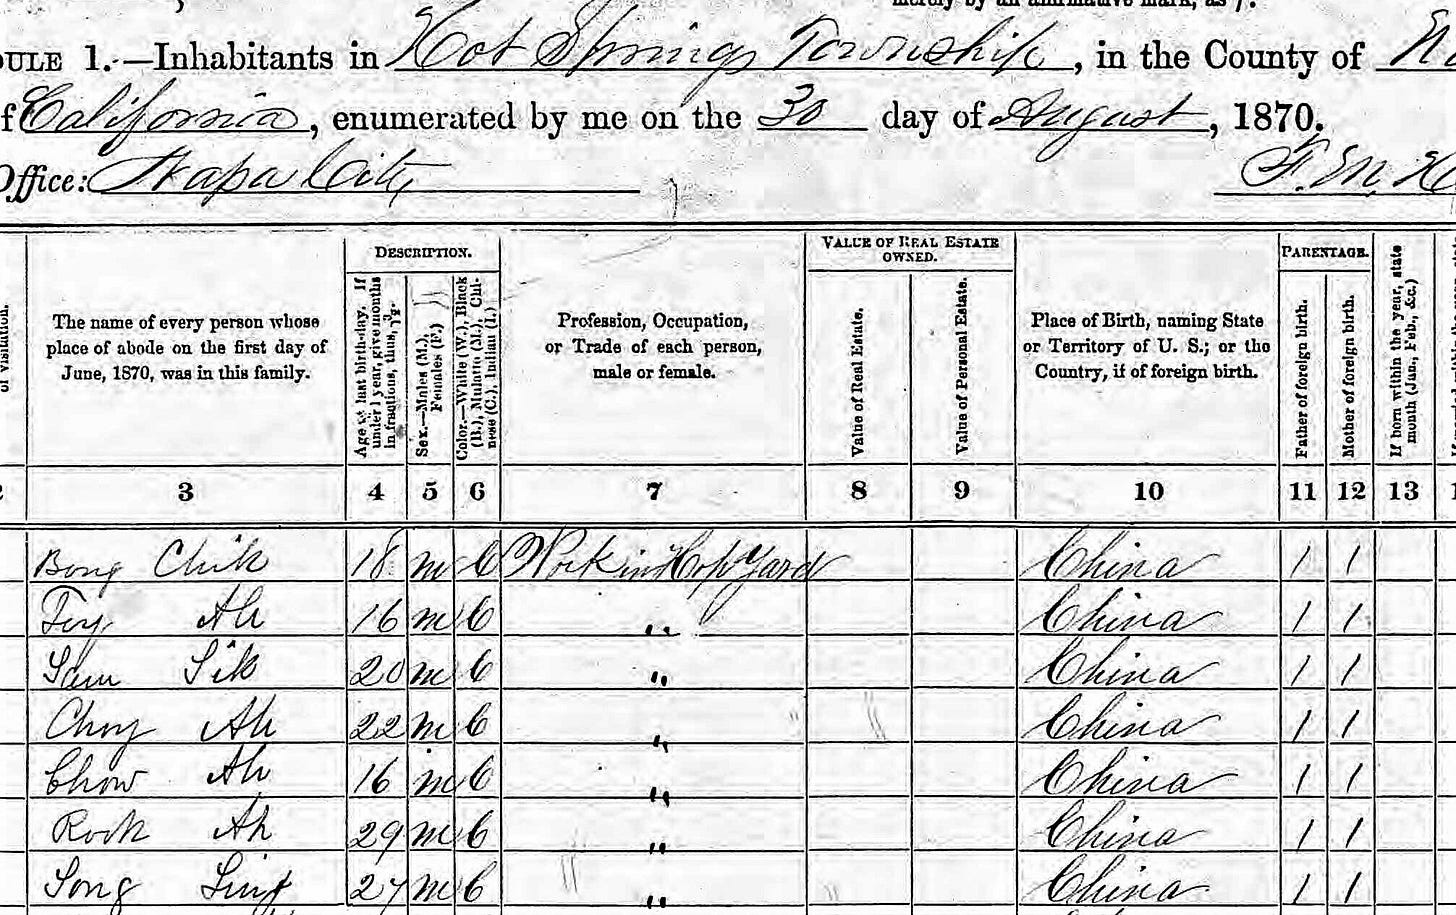 merely by an affirmative mark, as /.
DULE 1.—Inhabitants in Hot Springs Township, in the County of
of California, enumerated by me on the 30 day of August, 1870.
Office: Napa City
F. M.
of visitation.
The name of every person whose
place of abode on the first day of
June, 1870, was in this family.
DESCRIPTION.
Age at last birth-day. If
under 1 year, give months
in fractions, thus, 3/12.
Sex.—Males (M.),
Females (F.)
Color.—White (W.), Black
(B.), Mulatto (M.), Chi-
nese (C.), Indian (I.)
Profession, Occupation,
or Trade of each person,
male or female.
VALUE OF REAL ESTATE
OWNED.
Value of Real Estate.
Value of Personal Estate.
Place of Birth, naming State
or Territory of U. S.; or the
Country, if of foreign birth.
PARENTAGE.
Father of foreign birth.
Mother of foreign birth.
If born within the year, state
month (Jan., Feb., &c.)
3 4 5 6 7 8 9 10 11 12 13
Bong Chik 18 m C Work in Hop Yard China / /
Foy Ah 16 m C " China / /
Sam Sik 20 m C " China / /
Choy Ah 22 m C " China / /
Chow Ah 16 m C " China / /
Rook Ah 29 m C " China / /
Song Ling 27 m C " China / /